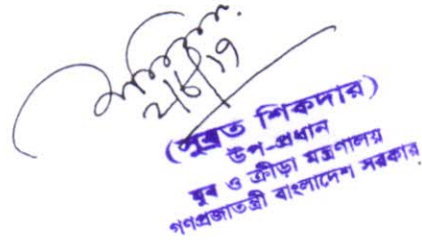 ২/৮/১৯
(সুব্রত শিকদার)
উপ-প্রধান
যুব ও ক্রীড়া মন্ত্রণালয়
গণপ্রজাতন্ত্রী বাংলাদেশ সরকার